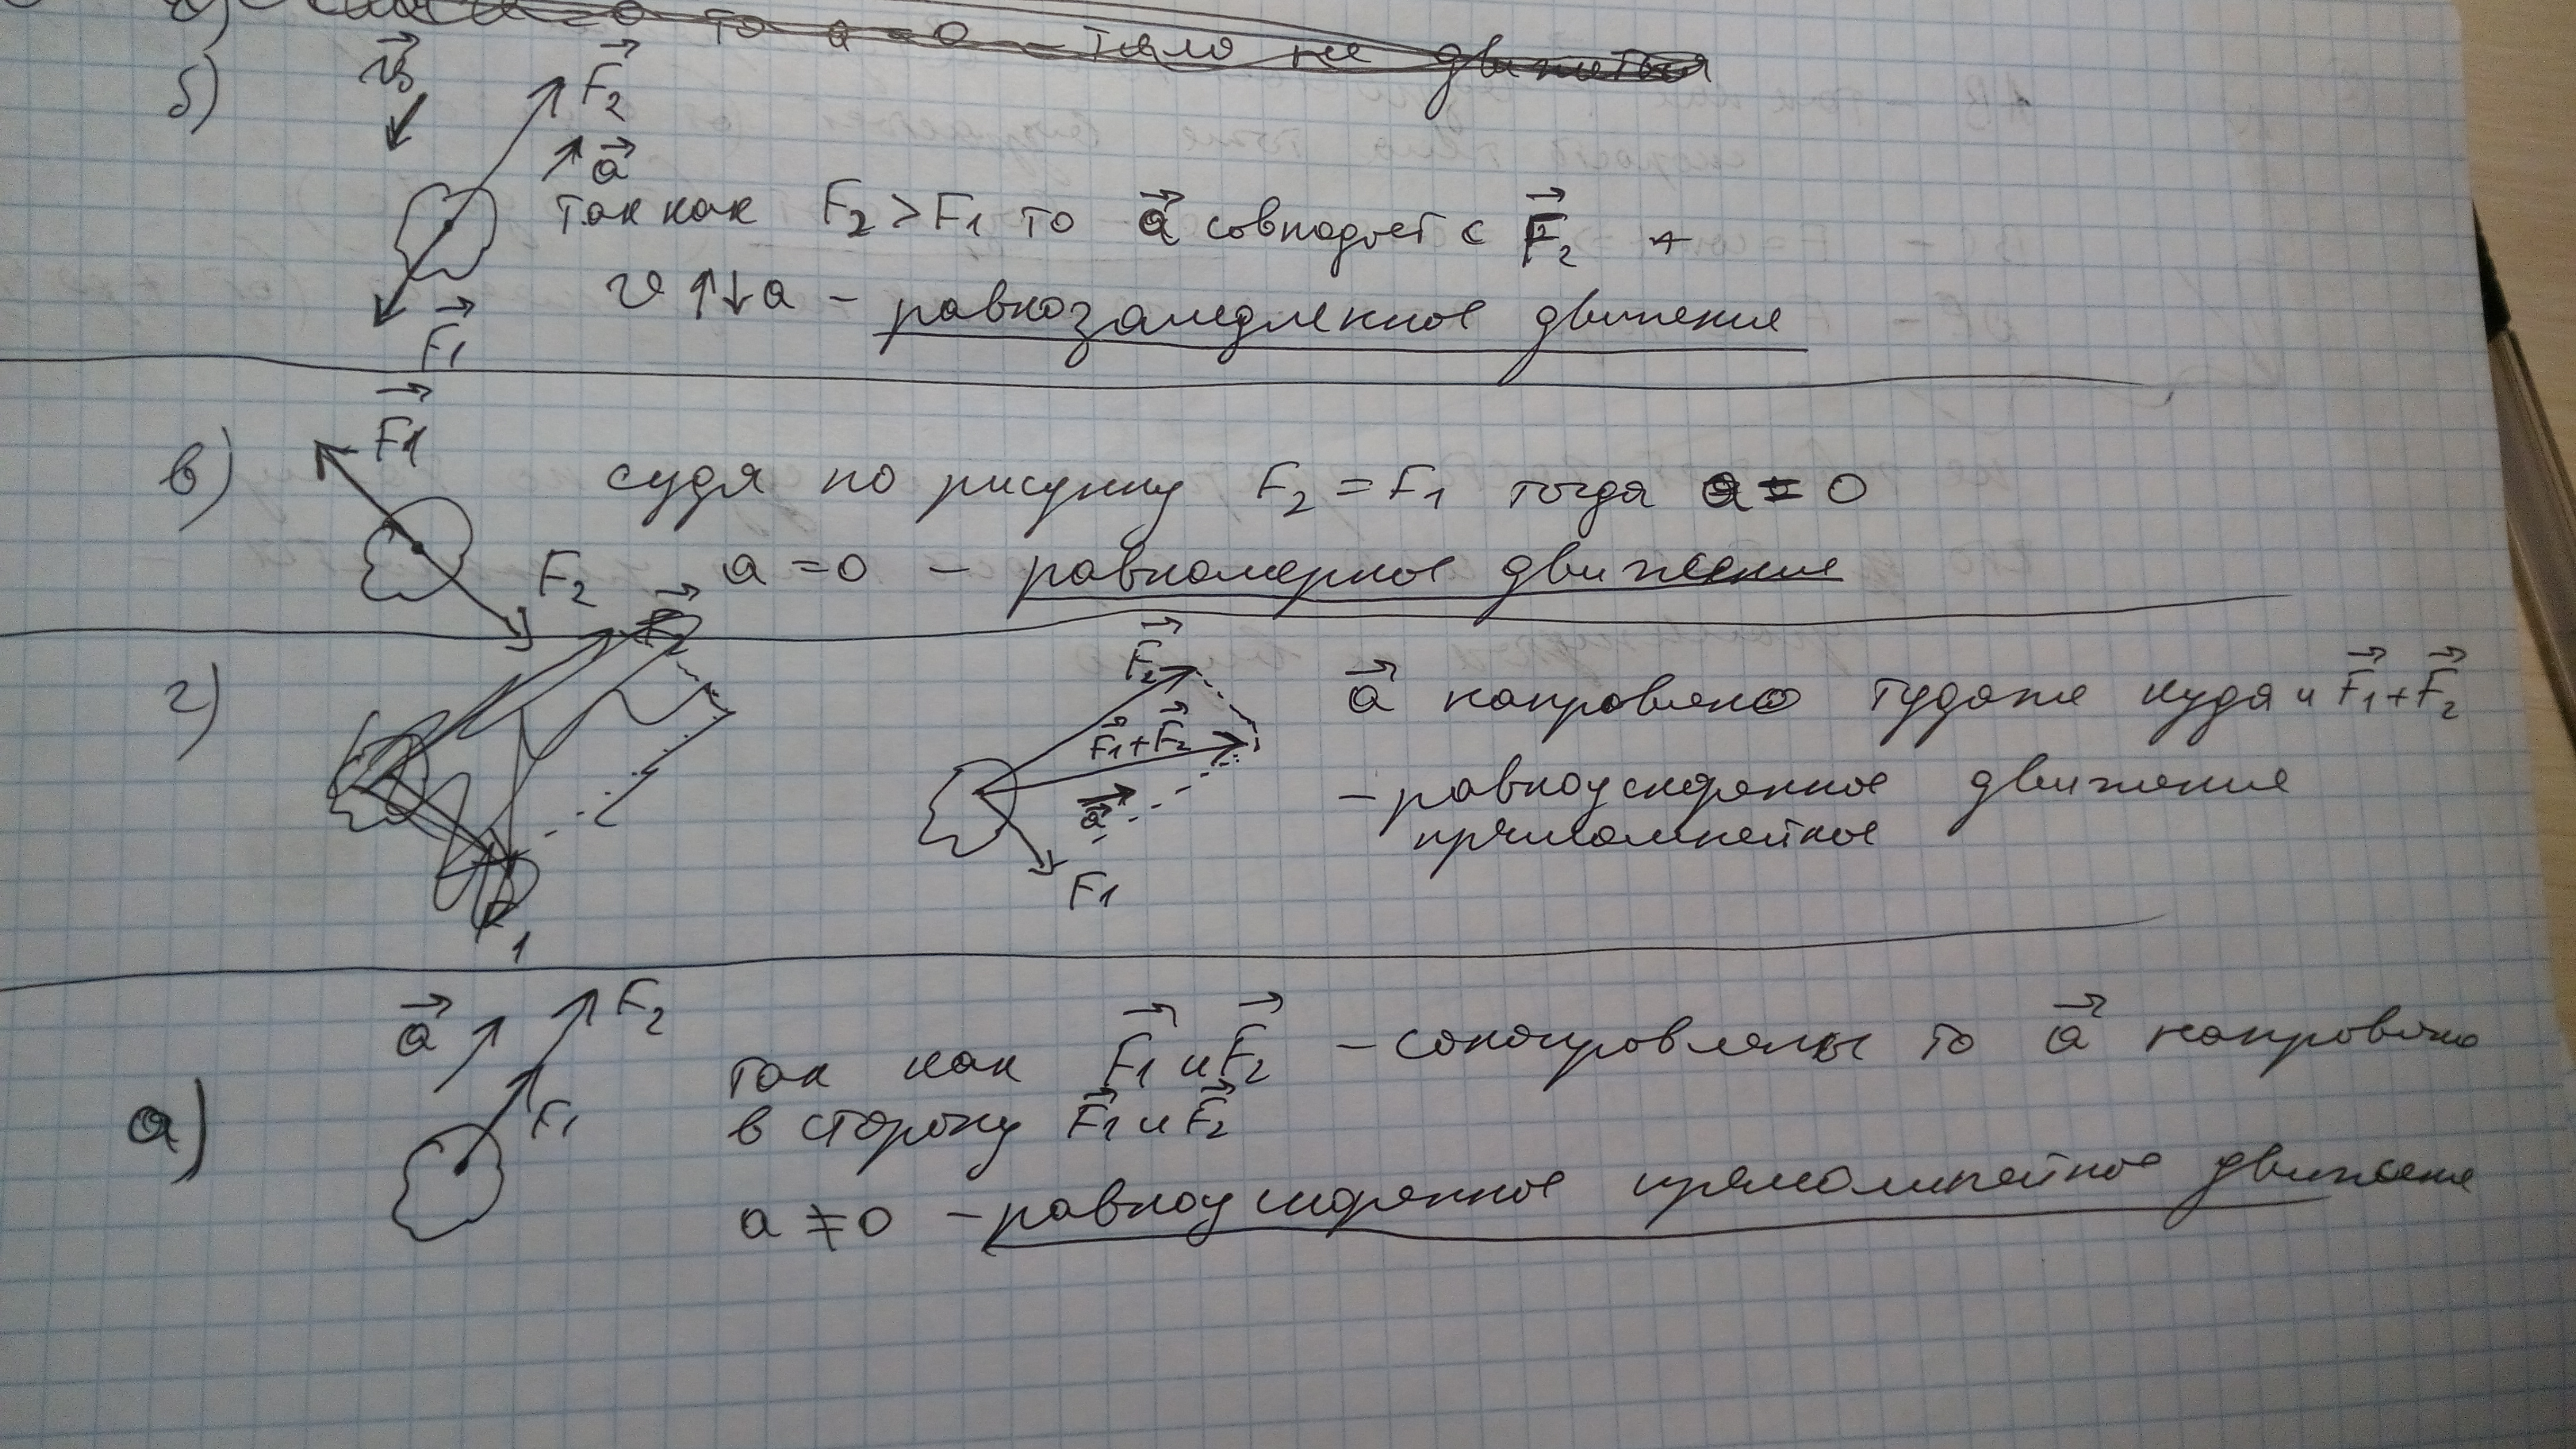 то a = 0 – тело не движется
б)
v₀
F₂
a
так как F₂ > F₁ то a совпадает с F₂
v ↑↓ a – равнозамедленное движение
F₁
F₁
в)
судя по рисунку F₂ = F₁ тогда a = 0
F₂
a = 0 – равномерное движение
г)
F₂
F₁+F₂
a
F₁
a направлено тудаже куда и F₁+F₂
– равноускоренное движение
прямолинейное
1
a
F₂
F₁
а)
так как F₁ и F₂ – сонаправлены то a направлено
в сторону F₁ и F₂
a ≠ 0 – равноускоренное прямолинейное движение